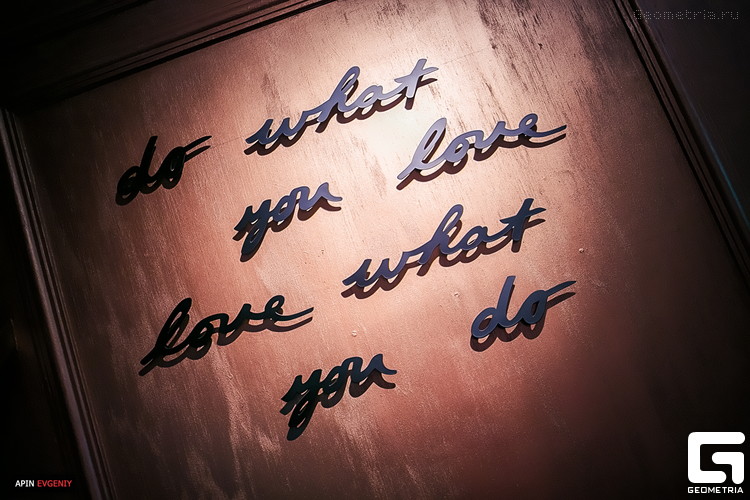 Geometria.ru
do what
you love
love what
you do
APIN EVGENIY
GEOMETRIA